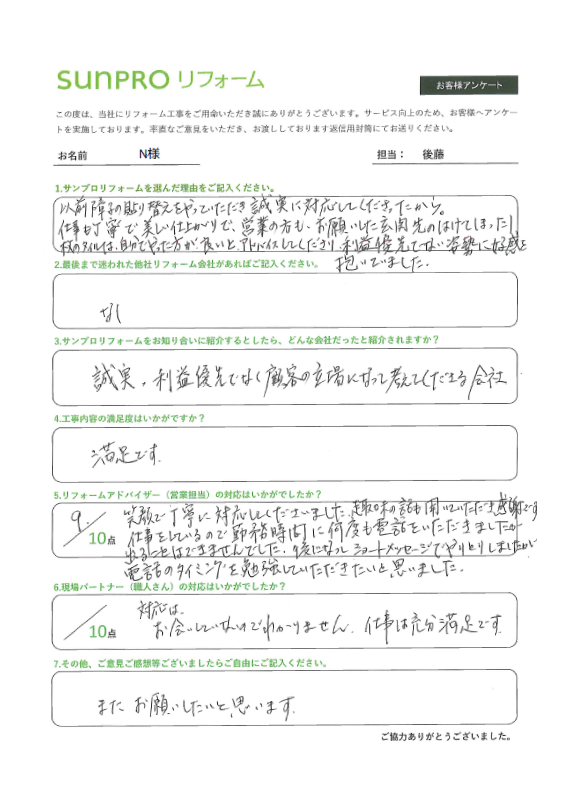 SUNPRO リフォーム
お客様アンケート
この度は、当社にリフォーム工事をご用命いただき誠にありがとうございます。サービス向上のため、お客様へアンケー
トを実施しております。率直なご意見をいただき、お渡ししております返信用封筒にてお送りください。
お名前 N様 担当： 後藤
1.サンプロリフォームを選んだ理由をご記入ください。
以前障子の貼り替えをやっていただき誠実に対応してくださったから。
仕事も丁寧で美しい仕上がりで、営業の方も、お願いした玄関先のはげてしまった1
枚のタイルは、自分でやった方が良いとアドバイスしてくださり、利益優先でない姿勢に好感を
抱いていました。
2.最後まで迷われた他社リフォーム会社があればご記入ください。
なし
3.サンプロリフォームをお知り合いに紹介するとしたら、どんな会社だったと紹介されますか？
誠実、利益優先でなく顧客の立場になって考えてくださる会社
4.工事内容の満足度はいかがですか？
満足です。
5.リフォームアドバイザー（営業担当）の対応はいかがでしたか？
9/10点
笑顔で丁寧に対応してくださいました。趣味の話も聞いていただき感謝です
仕事をしているので勤務時間に何度も電話をいただきましたが
出ることはできませんでした。後になってショートメッセージでやりとりしましたが
電話のタイミングを勉強していただきたいと思いました。
6.現場パートナー（職人さん）の対応はいかがでしたか？
/10点
対応は、
お会いしていないのでわかりません。仕事は充分満足です。
7.その他、ご意見ご感想等ございましたらご自由にご記入ください。
またお願いしたいと思います。
ご協力ありがとうございました。